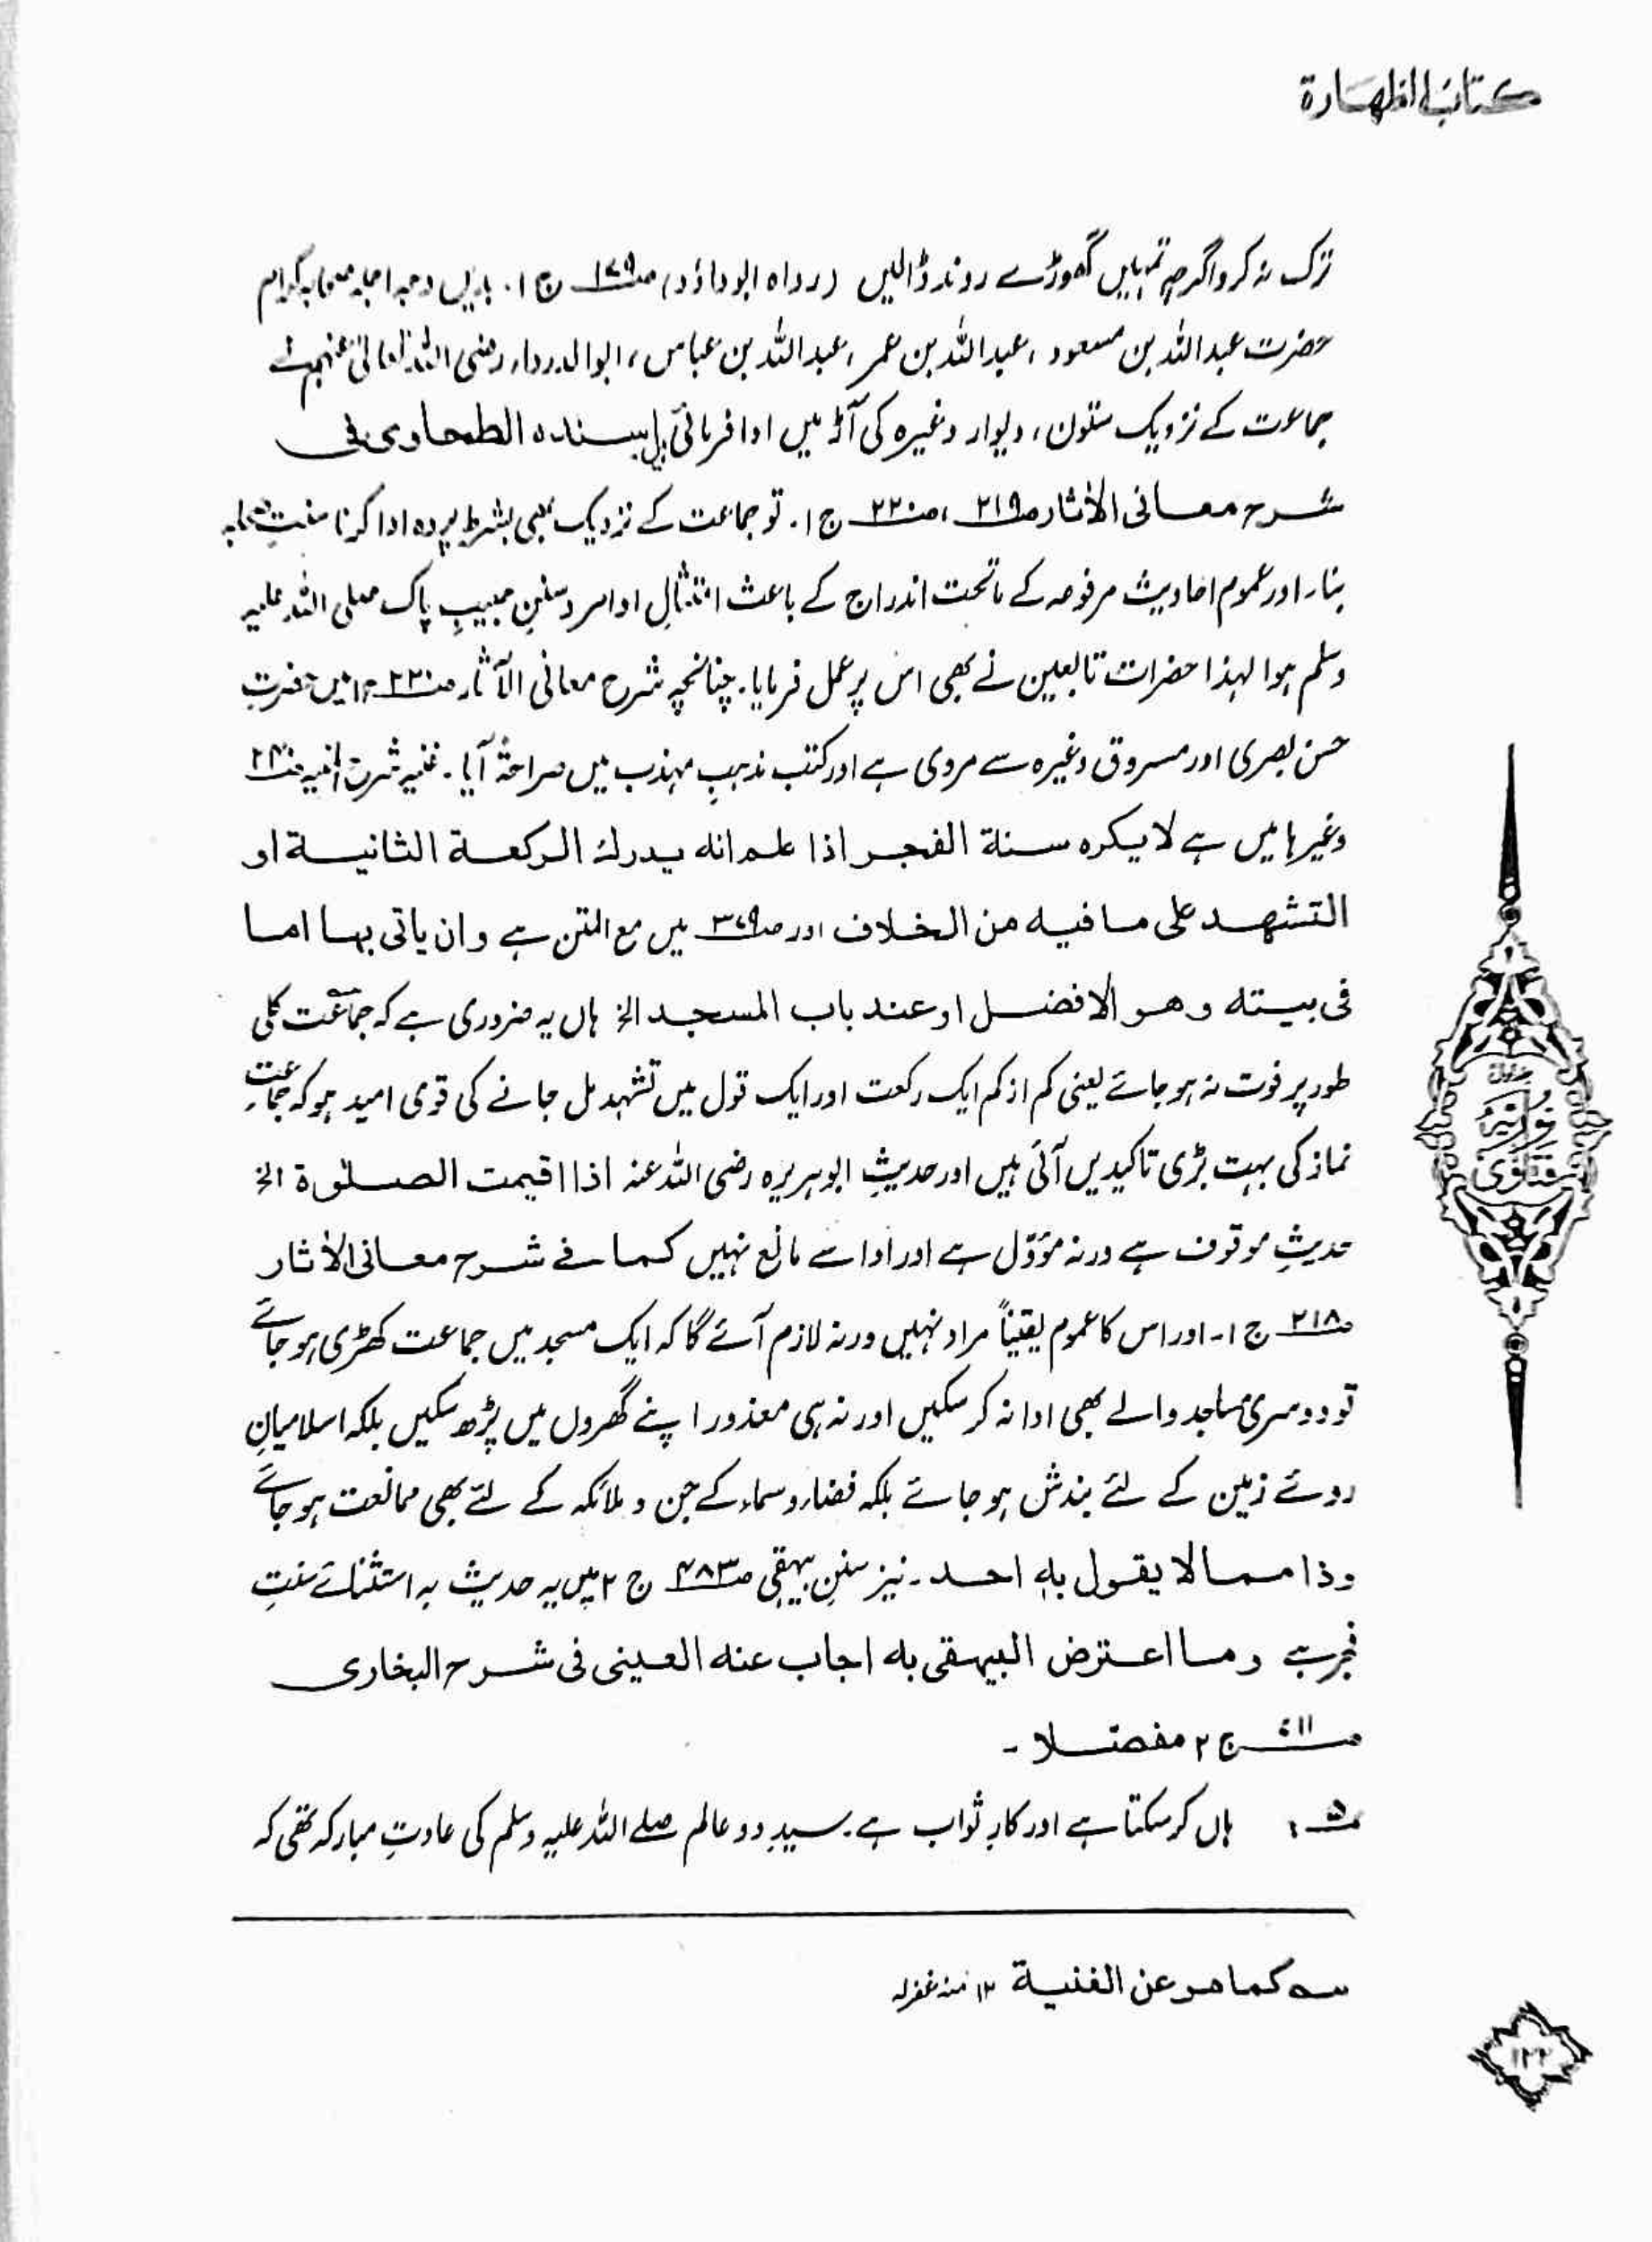 کتاب الطهارة
ترک نہ کرو اگرچہ تمہیں گھوڑے روند ڈالیں (رواہ ابوداؤد) صـ۱۷۹ ج ۱۔ بایں وجہ اجلہ صحابہ کرام
حضرت عبداللہ بن مسعود، عبداللہ بن عمر، عبداللہ بن عباس، ابوالدرداء رضی اللہ تعالیٰ عنہم نے
جماعت کے نزدیک ستون، دیوار وغیرہ کی آڑ میں ادا فرمائی بسنده الطحاوی فی
شرح معانی الآثار صـ۲۱۹، صـ۲۲۰ ج ۱۔ تو جماعت کے نزدیک بھی بشرط پردہ ادا کرنا سنتِ صحابہ
بنا اور عموم احادیث مرفوعہ کے ماتحت اندراج کے باعث امتثالِ اوامر و سننِ حبیبِ پاک صلی اللہ علیہ
وسلم ہوا لہذا حضرات تابعین نے بھی اس پر عمل فرمایا۔ چنانچہ شرح معانی الآثار صـ۲۲۰ ج۱ میں حضرت
حسن بصری اور مسروق وغیرہ سے مروی ہے اور کتب مذہبِ مہذب میں صراحۃً آیا۔ غنیہ شرح المنیہ صـ۲۴۰
وغیرہا میں ہے لا یکره سنة الفجر اذا علم انه یدرك الرکعة الثانیة او
التشهد علی ما فیه من الخلاف اور صـ۳۷۹ میں مع المتن ہے و ان یاتی بها اما
فی بیته و هو الافضل او عند باب المسجد الخ ہاں یہ ضروری ہے کہ جماعت کلی
طور پر فوت نہ ہو جائے یعنی کم از کم ایک رکعت اور ایک قول میں تشہد مل جانے کی قوی امید ہو کہ جماعت
نماز کی بہت بڑی تاکیدیں آئی ہیں اور حدیثِ ابوہریرہ رضی اللہ عنہ اذا اقیمت الصلوٰة الخ
حدیثِ موقوف ہے ورنہ مؤوّل ہے اور ادا سے مانع نہیں کما فی شرح معانی الآثار
صـ۲۱۸ ج ۱۔ اور اس کا عموم یقیناً مراد نہیں ورنہ لازم آئے گا کہ ایک مسجد میں جماعت کھڑی ہو جائے
تو دوسری مساجد والے بھی ادا نہ کر سکیں اور نہ ہی معذور اپنے گھروں میں پڑھ سکیں بلکہ اسلامیانِ
روئے زمین کے لئے بندش ہو جائے بلکہ فضاء و سماء کے جن و ملائکہ کے لئے بھی ممانعت ہو جائے
و ذا مما لا یقول به احد۔ نیز سننِ بیہقی صـ۴۸۳ ج ۲ میں یہ حدیث بہ استثنائے سنتِ
فجر ہے و ما اعترض البیهقی به اجاب عنه العینی فی شرح البخاری
صـ۷۱۱ ج ۲ مفصلا۔
۵: ہاں کر سکتا ہے اور کارِ ثواب ہے۔ سیدِ دو عالم صلے اللہ علیہ وسلم کی عادتِ مبارکہ تھی کہ
فتاویٰ
نوریہ
سہ کما مر عن الغنیة ۱۲ منہ غفرلہ
۱۲۲